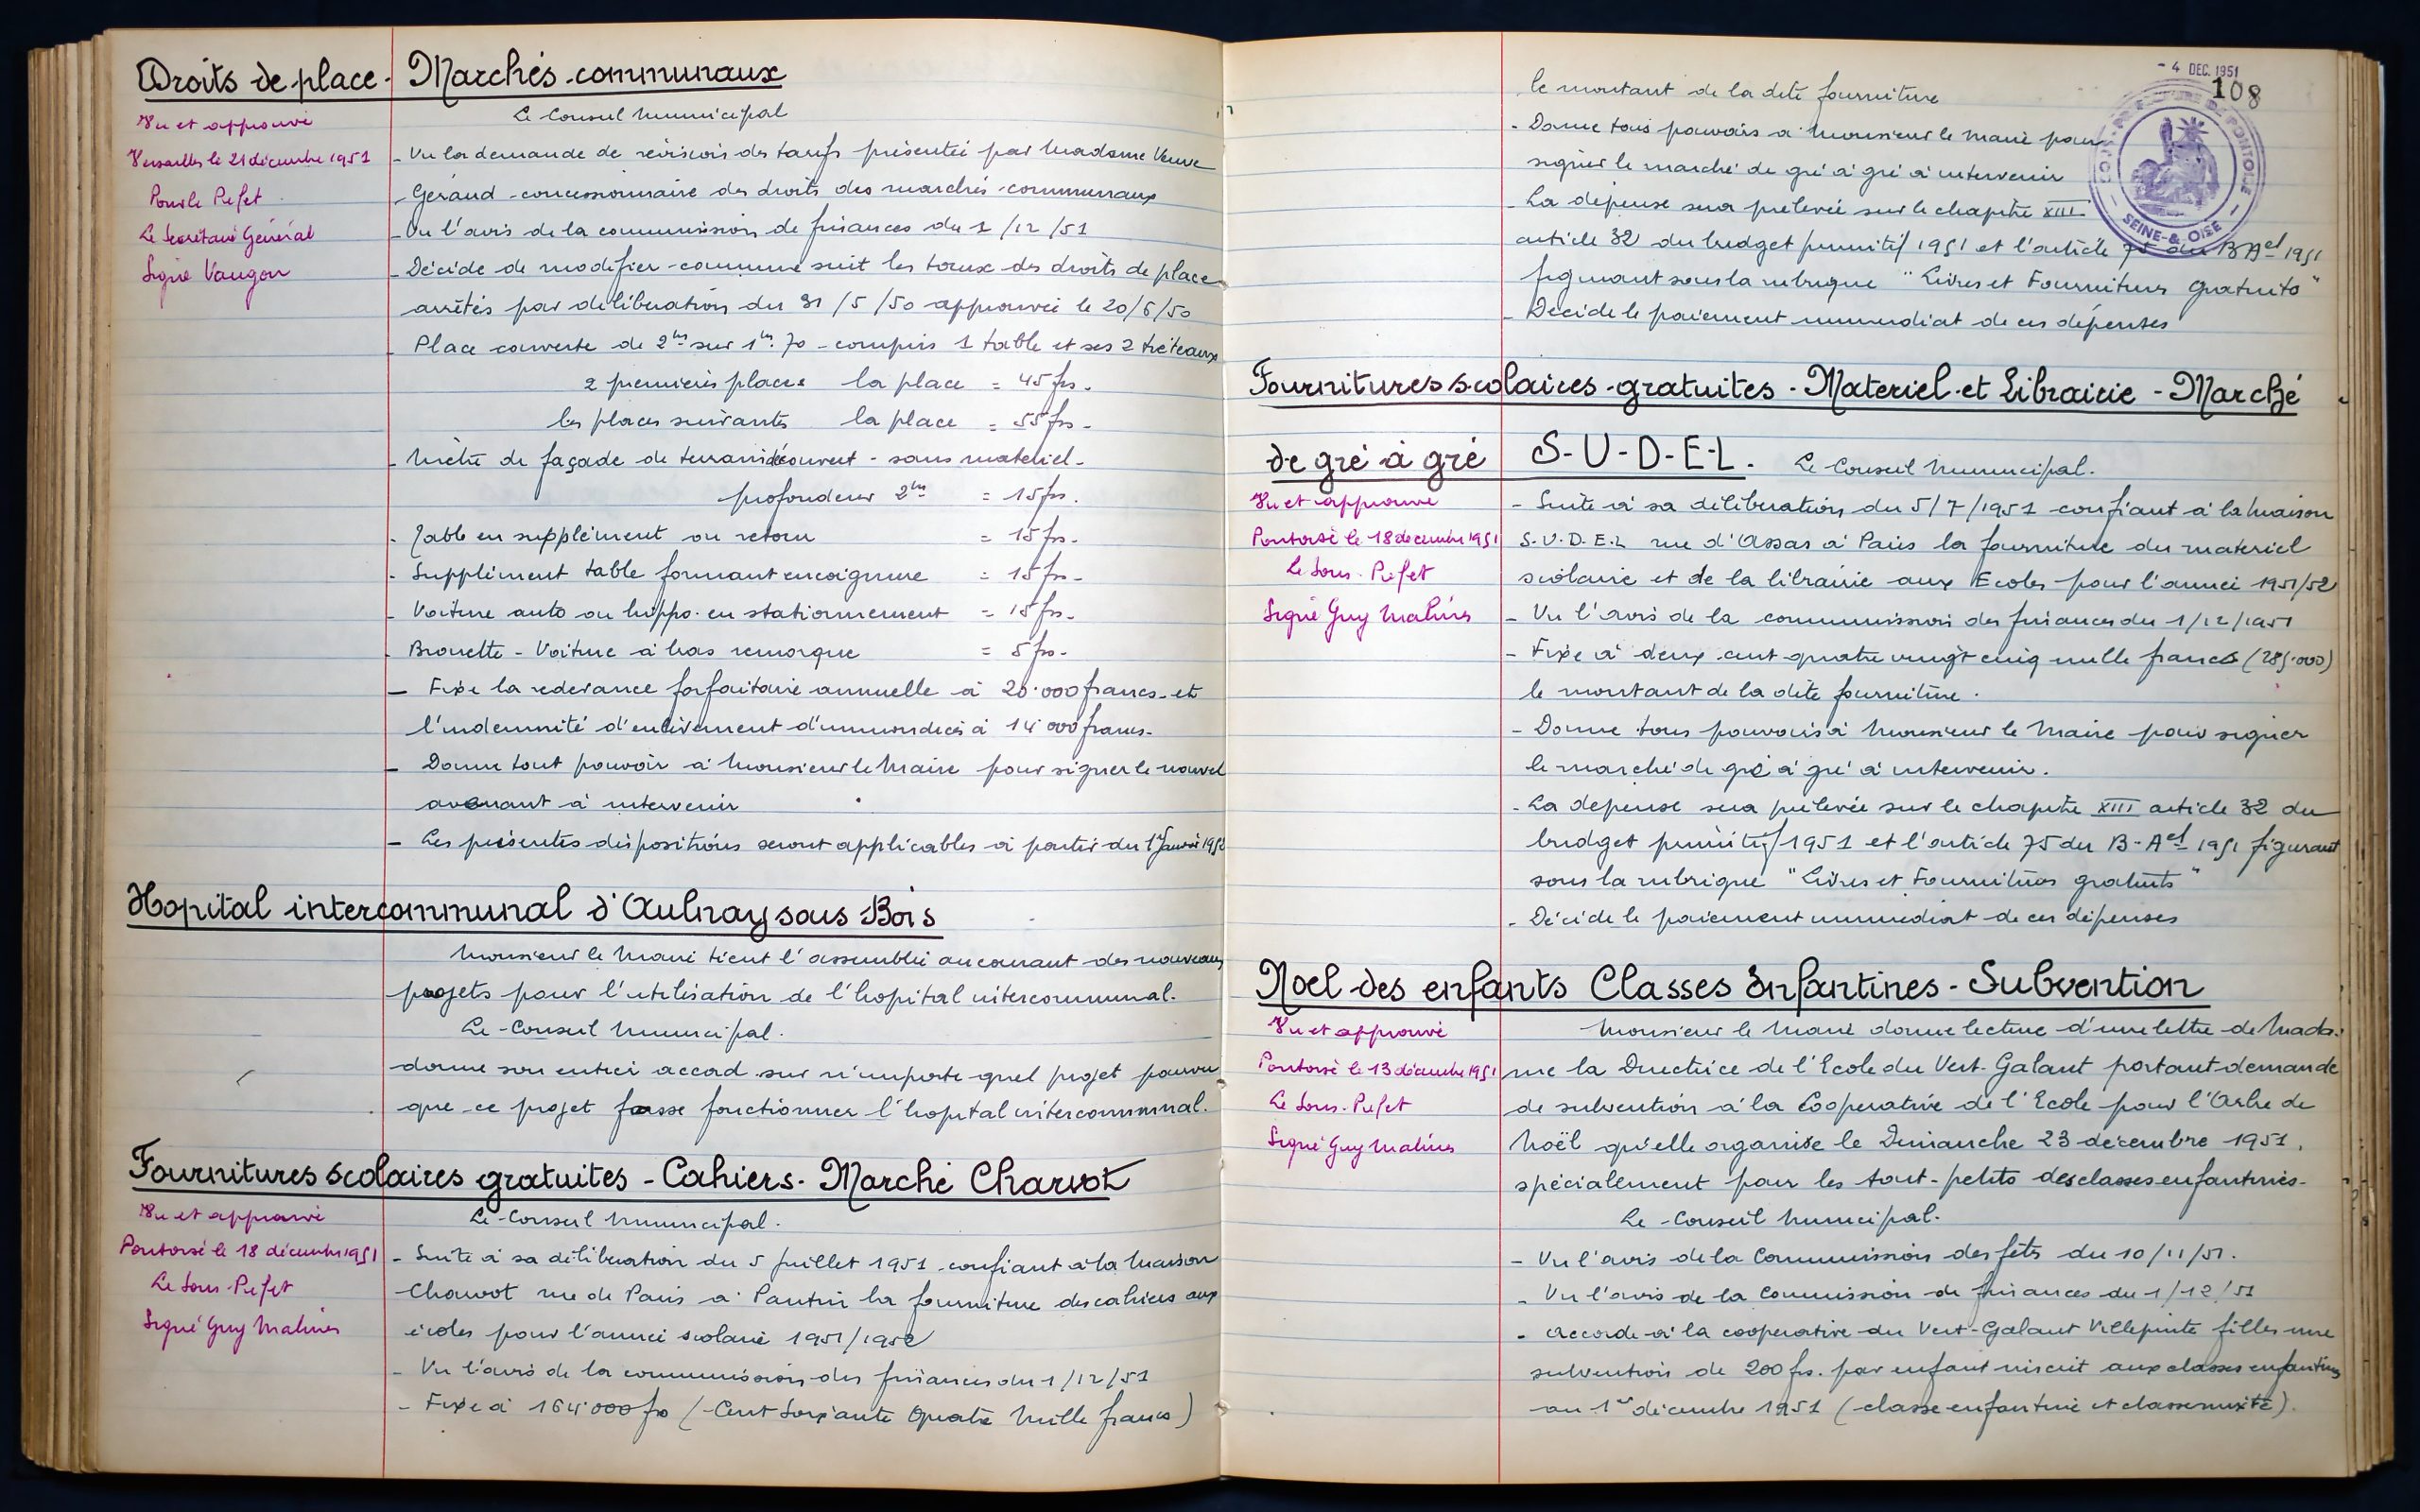 Droits de place - Marchés communaux
Le Conseil Municipal
Vu et approuvé
Versailles le 21 décembre 1951
Pour le Préfet
Le Secrétaire Général
Signé Vaugon
- Vu la demande de révision des tarifs présentée par Madame Veuve
- Géraud - concessionnaire des droits des marchés communaux
- Vu l'avis de la commission de finances du 1/12/51
- Décide de modifier comme suit les taux des droits de place
arrêtés par délibération du 31/5/50 approuvée le 20/6/50
- Place couverte de 2m sur 1m.70 - compris 1 table et ses 2 tréteaux
2 premières places la place = 45 frs.
les places suivantes la place = 55 frs -
- Mètre de façade de terrain découvert - sans matériel -
profondeur 2m = 15 frs.
- Table en supplément ou retour = 15 frs -
- Supplément table formant encoignure = 15 frs -
- Voiture auto ou hippo. en stationnement = 15 frs -
- Brouette - Voiture à bras remorque = 5 frs -
- Fixe la redevance forfaitaire annuelle à 20.000 francs - et
l'indemnité d'enlèvement d'immondices à 14 000 francs -
- Donne tout pouvoir à Monsieur le Maire pour signer le nouvel
avenant à intervenir
- Les présentes dispositions seront applicables à partir du 1er Janvier 1952
Hopital intercommunal d'Aulnay sous Bois
Monsieur le Maire tient l'assemblée au courant des nouveaux
projets pour l'utilisation de l'hopital intercommunal.
Le Conseil Municipal.
donne son entier accord sur n'importe quel projet pourvu
que ce projet fasse fonctionner l'hopital intercommunal.
Fournitures scolaires gratuites - Cahiers - Marché Charvot
Le Conseil Municipal.
Vu et approuvé
Pontoise le 18 décembre 1951
Le Sous-Préfet
Signé Guy Malines
- Suite à sa délibération du 5 Juillet 1951 confiant à la Maison
Charvot rue de Paris à Pantin la fourniture des cahiers aux
écoles pour l'année scolaire 1951/1952
- Vu l'avis de la commission des finances du 1/12/51
- Fixe à 164.000 frs (Cent Soixante Quatre Mille francs)
- 4 DEC. 1951
108
SOUS-PRÉFECTURE DE PONTOISE
SEINE-&-OISE
le montant de la dite fourniture
- Donne tous pouvoirs à Monsieur le Maire pour
signer le marché de gré à gré à intervenir
- La dépense sera prélevée sur le chapitre XIII
article 32 du budget primitif 1951 et l'article 75 du B Ael 1951
figurant sous la rubrique "Livres et Fournitures Gratuits"
- Décide le paiement immédiat de ces dépenses
Fournitures scolaires gratuites - Materiel et Librairie - Marché
de gré à gré S-U-D-E-L. Le Conseil Municipal.
Vu et approuvé
Pontoise le 18 décembre 1951
Le Sous-Préfet
Signé Guy Malines
- Suite à sa délibération du 5/7/1951 confiant à la Maison
S.U.D.E.L rue d'Assas à Paris la fourniture du materiel
scolaire et de la librairie aux Ecoles pour l'année 1951/52
- Vu l'avis de la commission des finances du 1/12/1951
- Fixe à deux cent quatre vingt cinq mille francs (285.000)
le montant de la dite fourniture.
- Donne tous pouvoirs à Monsieur le Maire pour signer
le marché de gré à gré à intervenir.
- La dépense sera prélevée sur le chapitre XIII article 32 du
budget primitif 1951 et l'article 75 du B-Ael 1951 figurant
sous la rubrique "Livres et Fournitures gratuits"
- Décide le paiement immédiat de ces dépenses
Noel des enfants Classes Enfantines - Subvention
Vu et approuvé
Pontoise le 13 décembre 1951
Le Sous-Préfet
Signé Guy Malines
Monsieur le Maire donne lecture d'une lettre de Mada-
me la Directrice de l'Ecole du Vert-Galant portant demande
de subvention à la Coopérative de l'Ecole pour l'Arbre de
Noël qu'elle organise le Dimanche 23 décembre 1951,
spécialement pour les tout-petits des classes enfantines -
Le Conseil Municipal.
- Vu l'avis de la Commission des fêtes du 10/11/51.
- Vu l'avis de la Commission de finances du 1/12/51
- Accorde à la coopérative du Vert-Galant Villepinte filles une
subvention de 200 frs. par enfant inscrit aux classes enfantines
au 1er décembre 1951 (classe enfantine et classe mixte).